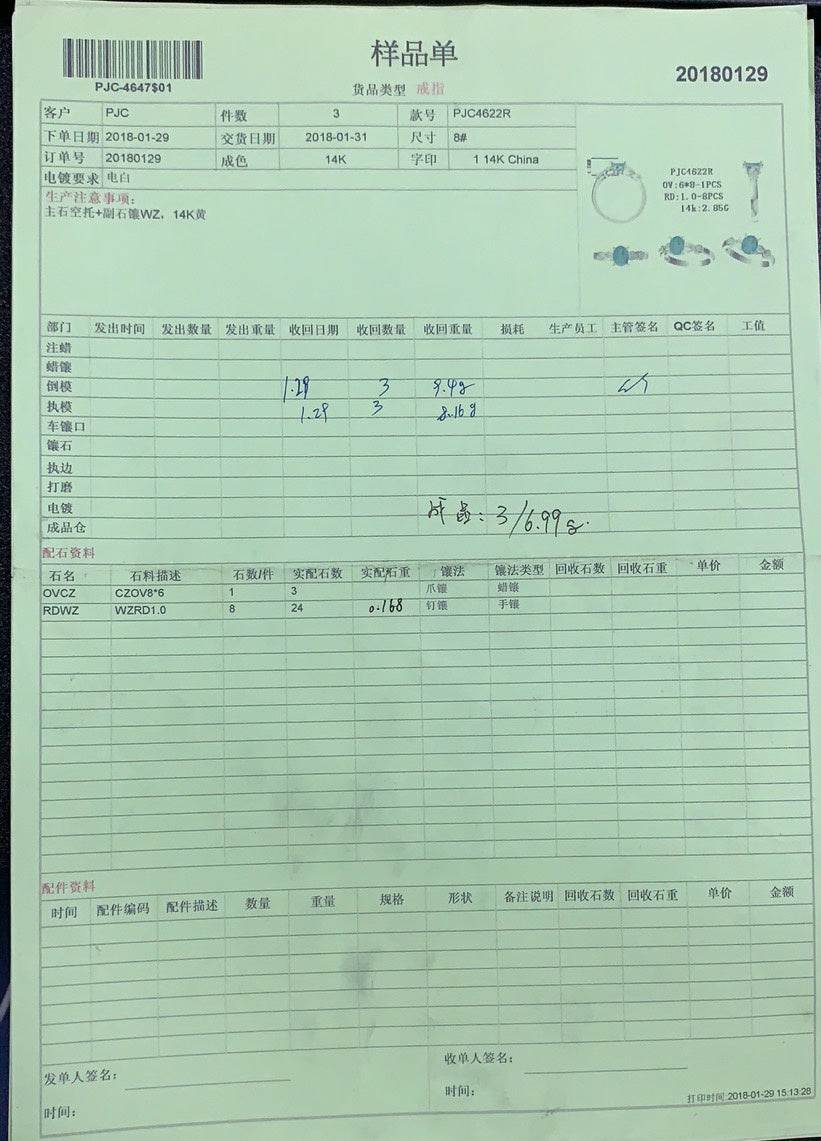 样品单
PJC-4647$01
货品类型 戒指
20180129
客户 PJC 件数 3 款号 PJC4622R
下单日期 2018-01-29 交货日期 2018-01-31 尺寸 8#
订单号 20180129 成色 14K 字印 1 14K China
电镀要求 电白
生产注意事项:
主石空托+副石镶WZ，14K黄
PJC4622R
OV:6*8-1PCS
RD:1.0-8PCS
14k:2.85G
部门 发出时间 发出数量 发出重量 收回日期 收回数量 收回重量 损耗 生产员工 主管签名 QC签名 工值
注蜡
蜡镶
倒模 1.29 3 9.4g
执模 1.29 3 8.16g
车镶口
镶石
执边
打磨
电镀
成品仓
成品: 3/6.99g.
配石资料
石名 石料描述 石数/件 实配石数 实配石重 镶法 镶法类型 回收石数 回收石重 单价 金额
OVCZ CZOV8*6 1 3 爪镶 蜡镶
RDWZ WZRD1.0 8 24 0.168 钉镶 手镶
配件资料
时间 配件编码 配件描述 数量 重量 规格 形状 备注说明 回收石数 回收石重 单价 金额
发单人签名: 收单人签名:
时间: 时间:
打印时间:2018-01-29 15:13:28